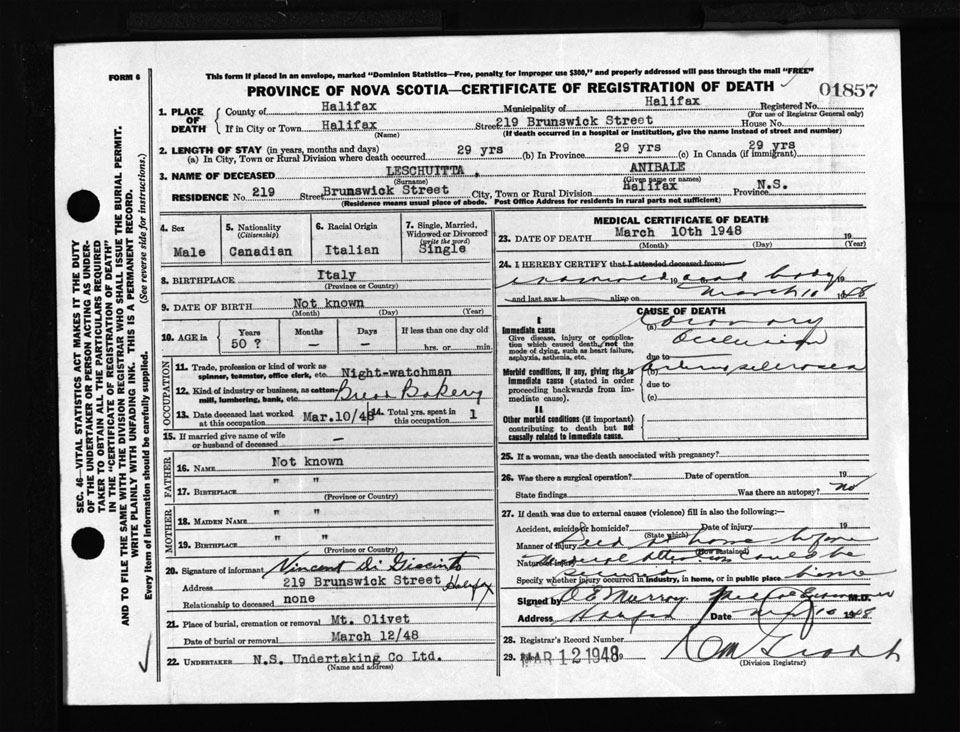 FORM 6
This form if placed in an envelope, marked "Dominion Statistics—Free, penalty for improper use $300," and properly addressed will pass through the mail "FREE"
PROVINCE OF NOVA SCOTIA—CERTIFICATE OF REGISTRATION OF DEATH
01857
1. PLACE OF DEATH
County of Halifax Municipality of Halifax Registered No.
(For use of Registrar General only)
If in City or Town Halifax Street 219 Brunswick Street House No.
(Name) (If death occurred in a hospital or institution, give the name instead of street and number)
2. LENGTH OF STAY (in years, months and days)
(a) In City, Town or Rural Division where death occurred 29 yrs (b) In Province 29 yrs (c) In Canada (if immigrant) 29 yrs
3. NAME OF DECEASED LESCHUITTA, ANIBALE
(Surname) (Given name or names)
RESIDENCE No. 219 Street Brunswick Street City, Town or Rural Division Halifax Province N.S.
(Residence means usual place of abode. Post Office Address for residents in rural parts not sufficient)
4. Sex
Male
5. Nationality
(Citizenship)
Canadian
6. Racial Origin
Italian
7. Single, Married, Widowed or Divorced
(write the word)
Single
8. BIRTHPLACE Italy
(Province or Country)
9. DATE OF BIRTH Not known
(Month) (Day) (Year)
10. AGE in
Years Months Days If less than one day old
50 ? — — hrs. or min.
OCCUPATION
11. Trade, profession or kind of work as
spinner, teamster, office clerk, etc. Night-watchman
12. Kind of industry or business, as cotton-
mill, lumbering, bank, etc. Bread Bakery
13. Date deceased last worked
at this occupation Mar.10/48
14. Total yrs. spent in
this occupation 1
15. If married give name of wife
or husband of deceased —
FATHER
16. NAME Not known
17. BIRTHPLACE " "
(Province or Country)
MOTHER
18. MAIDEN NAME " "
19. BIRTHPLACE " "
(Province or Country)
20. Signature of informant Vincent Di Giacinto
Address 219 Brunswick Street Halifax
Relationship to deceased none
21. Place of burial, cremation or removal Mt. Olivet
Date of burial or removal March 12/48
22. UNDERTAKER N.S. Undertaking Co Ltd.
(Name and address)
MEDICAL CERTIFICATE OF DEATH
23. DATE OF DEATH March 10th 1948 19
(Month) (Day) (Year)
24. I HEREBY CERTIFY that I attended deceased from
examined 19 dead body
and last saw h alive on March 10 1948
CAUSE OF DEATH
I
Immediate cause
Give disease, injury or complica-
tion which caused death, not the
mode of dying, such as heart failure,
asphyxia, asthenia, etc.
(a) Coronary
Occlusion
due to
Morbid conditions, if any, giving rise to
immediate cause (stated in order
proceeding backwards from im-
mediate cause).
(b)
due to
(c)
II
Other morbid conditions (if important)
contributing to death but not
causally related to immediate cause.
25. If a woman, was the death associated with pregnancy?
26. Was there a surgical operation? Date of operation 19
State findings Was there an autopsy? no
27. If death was due to external causes (violence) fill in also the following:—
Accident, suicide or homicide? Date of injury 19
(State which)
Manner of injury Died at home before
(How sustained)
Nature of injury medical attention could be
Specify whether injury occurred in industry, in home, or in public place home
Signed by O E Murray M.D.
Address Halifax Date Mar 10 1948
28. Registrar's Record Number
29. MAR 12 1948 19
(Division Registrar)
SEC. 46—VITAL STATISTICS ACT MAKES IT THE DUTY
OF THE UNDERTAKER OR PERSON ACTING AS UNDER-
TAKER TO OBTAIN ALL THE PARTICULARS REQUIRED
IN THE "CERTIFICATE OF REGISTRATION OF DEATH"
AND TO FILE THE SAME WITH THE DIVISION REGISTRAR WHO SHALL ISSUE THE BURIAL PERMIT.
WRITE PLAINLY WITH UNFADING INK. THIS IS A PERMANENT RECORD.
Every item of information should be carefully supplied. (See reverse side for instructions.)